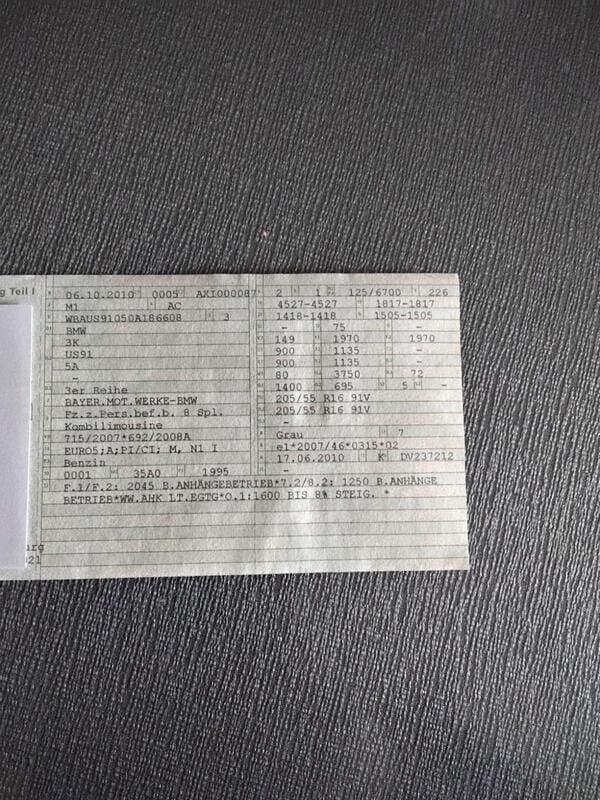 g Teil I
06.10.2010 0005 AXI000087
M1 AC
WBAUS91050A186608 3
BMW
3K
US91
5A
-
3er Reihe
BAYER.MOT.WERKE-BMW
Fz.z.Pers.bef.b. 8 Spl.
Kombilimousine
715/2007*692/2008A
EURO5;A;PI/CI; M, N1 I
Benzin
0001 35A0 1995
2 1 125/6700 226
4527-4527 1817-1817
1418-1418 1505-1505
- 75 -
149 1970 1970
900 1135 -
900 1135 -
80 3750 72
1400 695 5 -
205/55 R16 91V
205/55 R16 91V
-
Grau 7
e1*2007/46*0315*02
17.06.2010 K DV237212
-
F.1/F.2: 2045 B.ANHÄNGEBETRIEB*7.2/8.2: 1250 B.ANHÄNGE
BETRIEB*WW.AHK LT.EGTG*O.1:1600 BIS 8% STEIG. *
urg
21